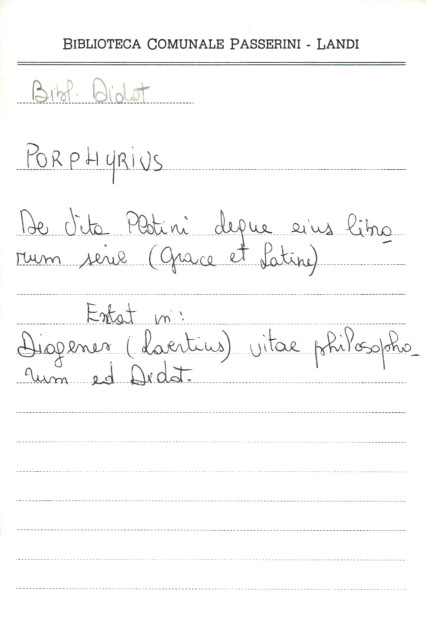 BIBLIOTECA COMUNALE PASSERINI - LANDI
Bibl. Didot
PORPHYRIUS
De Vita Plotini deque eius libro
rum serie (Graece et Latine)
Extat in:
Diogenes (Laertius) vitae philosopho_
rum ed Didot.